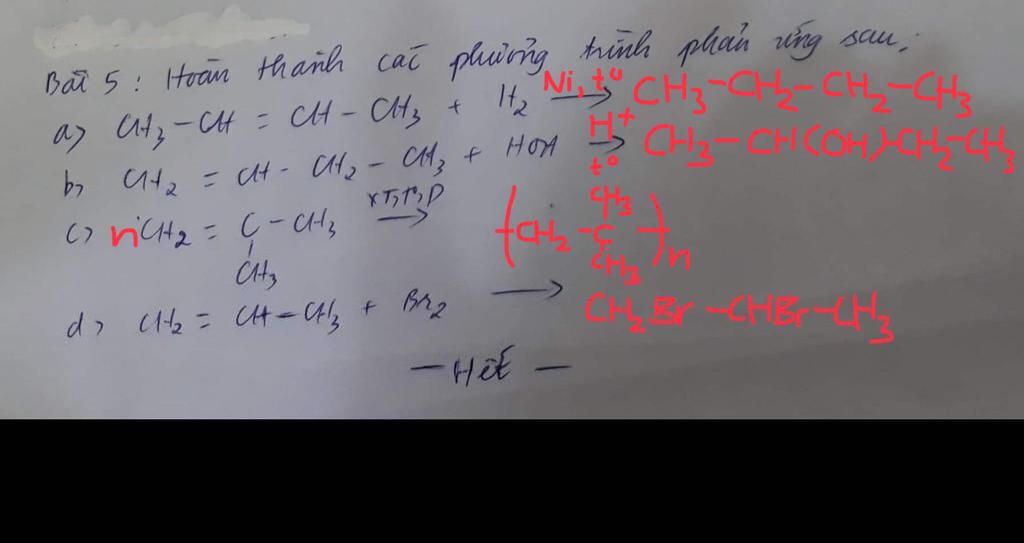 Bài 5: Hoàn thành các phương trình phản ứng sau:
a, CH3-CH = CH-CH3 + H2 Ni, t° → CH3-CH2-CH2-CH3
b, CH2 = CH-CH2-CH3 + HOH H+ t° → CH3-CH(OH)-CH2-CH3
c, nCH2 = C-CH3 xt, t°, p → (CH2-C)n
CH3 CH3 CH3
d, CH2 = CH-CH3 + Br2 → CH2Br-CHBr-CH3
- Hết -